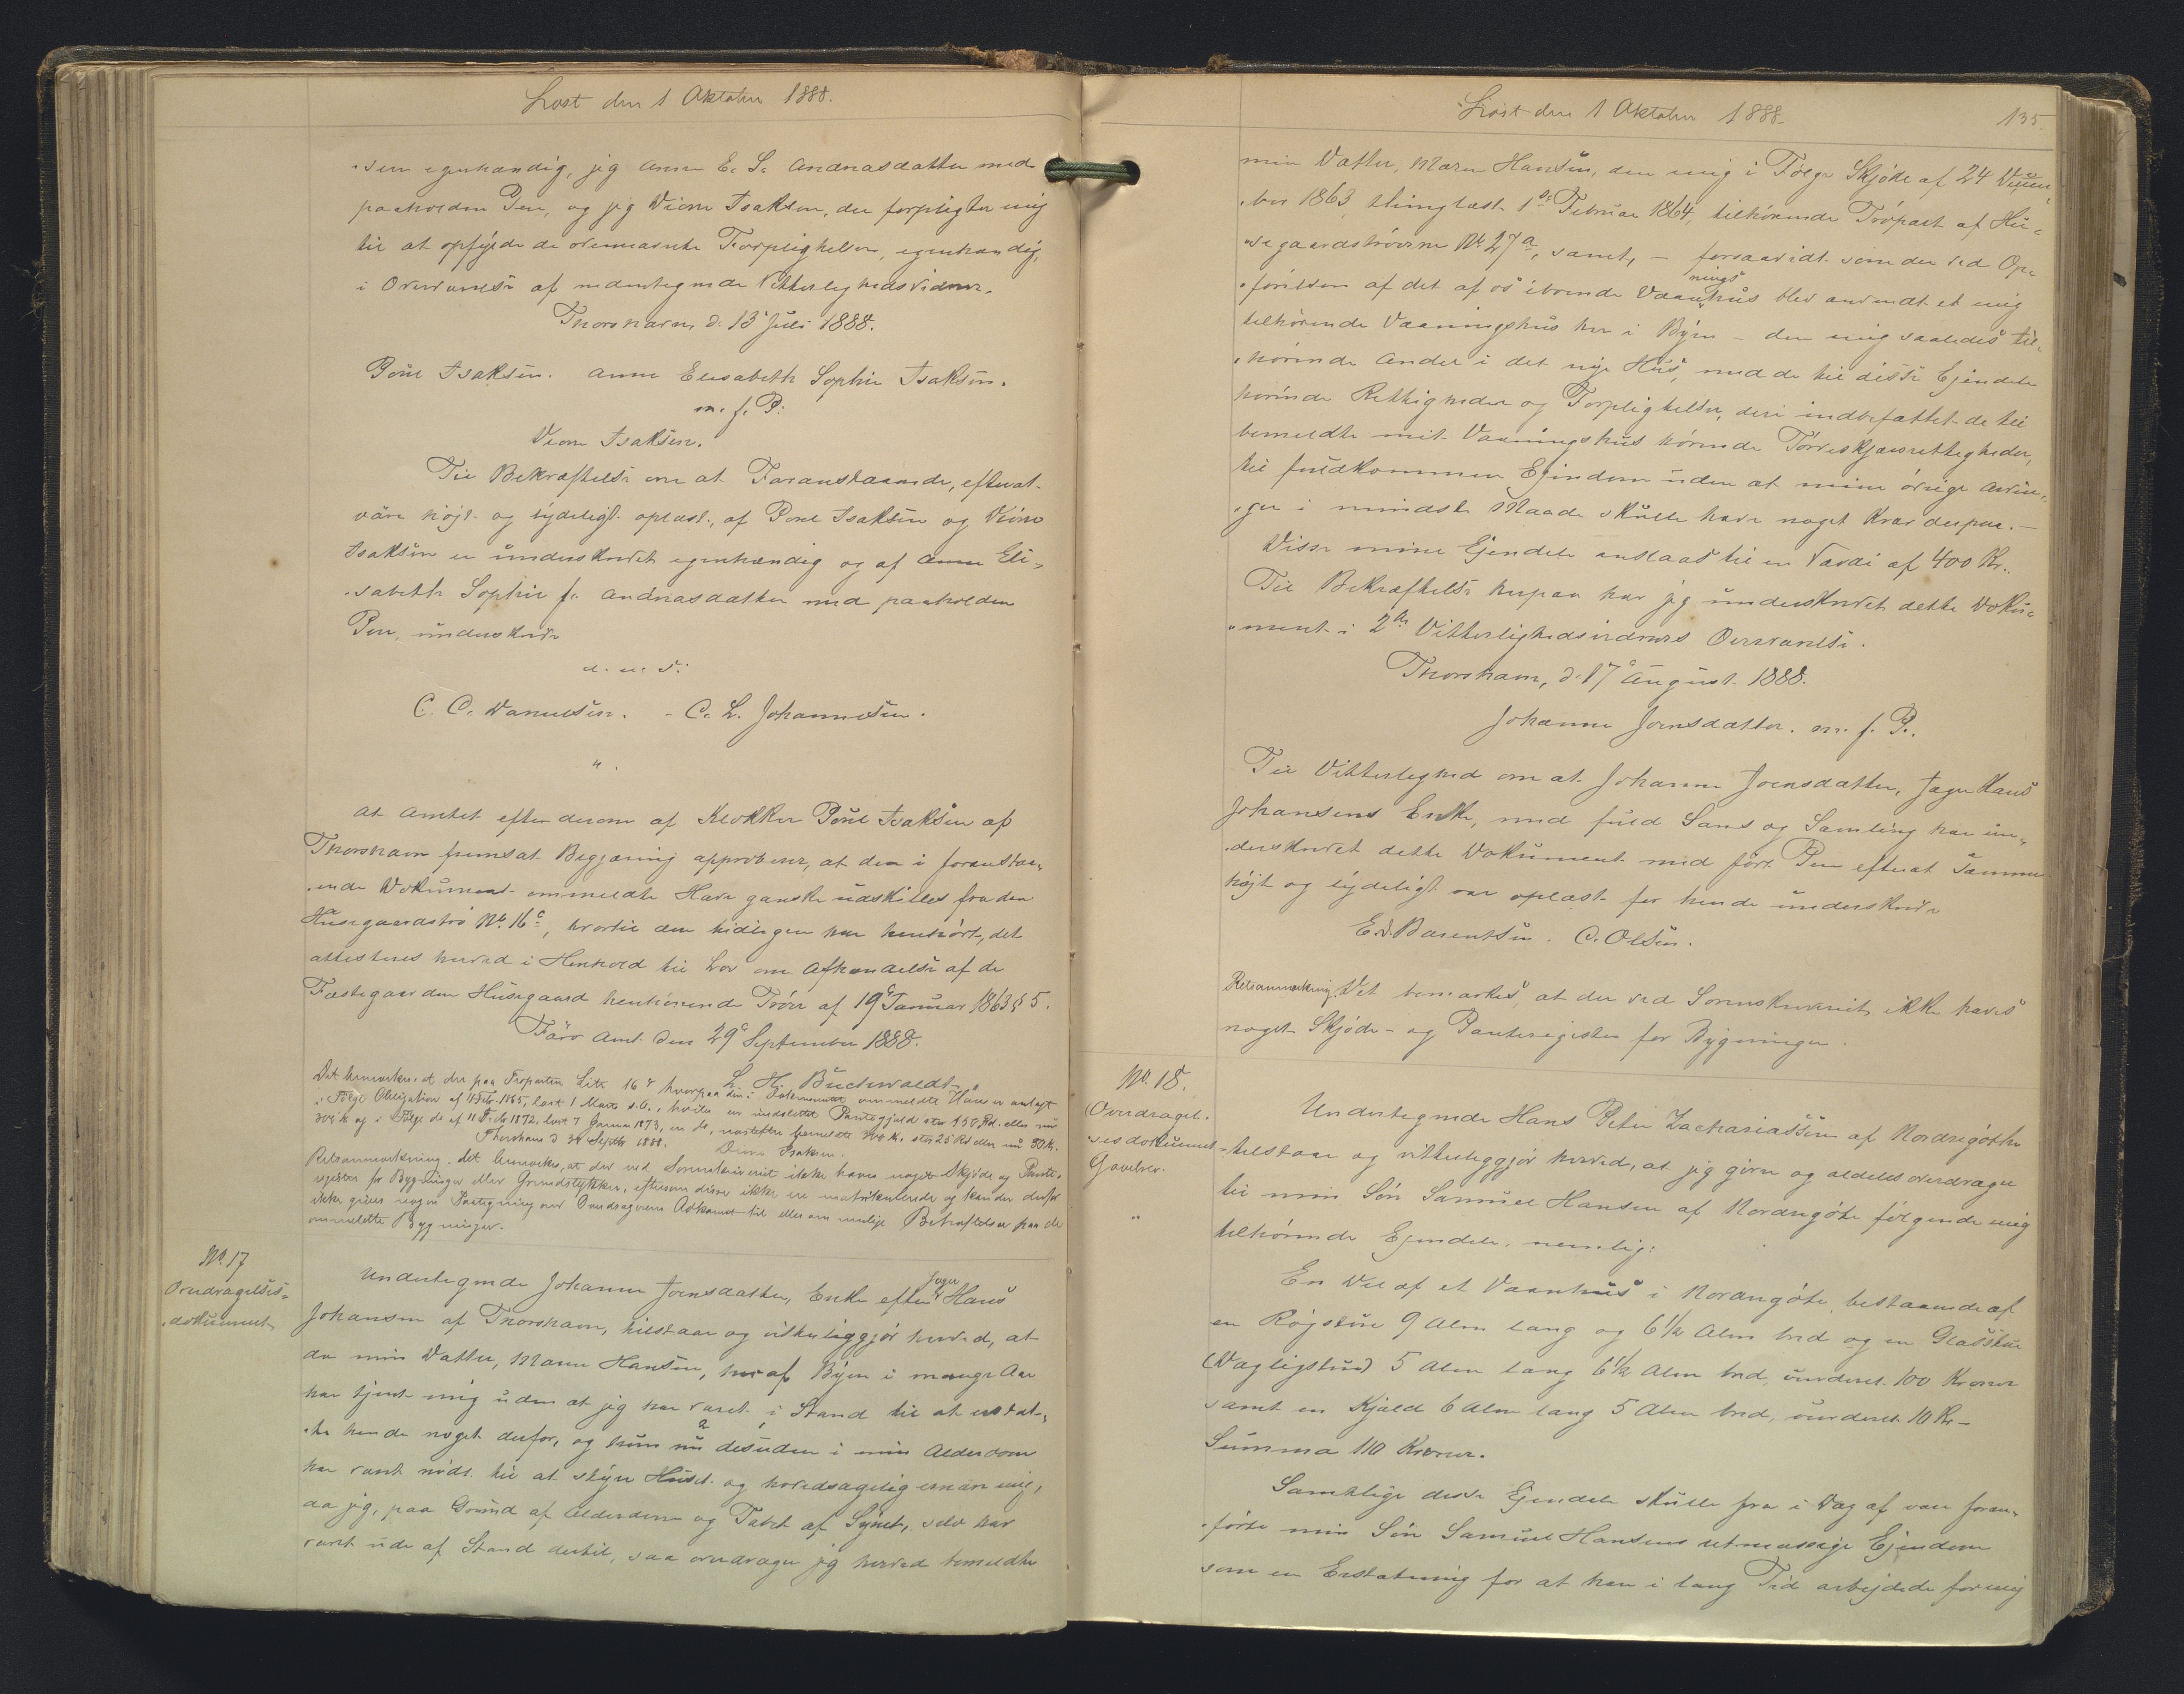 Læst den 1 Oktober 1888.
"sen egenhændig, jeg Anne E. S. Andreasdatter med
paaholden Pen, og jeg Diome Isaksen, der forpligter mig
til at opfylde de ovennævnte Forpligtelser, egenhændig,
i Overværelse af nedentegnede Vitterlighedsvidner.
Thorshavn d. 13' Juli 1888.
Poul Isaksen. Anne Elisabeth Sophie Isaksen.
m. f. P.
Isaksen.
Til Bekræftelse om at Foranstaaende, efterat
være højt og tydeligt oplæst, af Poul Isaksen og
Isaksen er underskrevet egenhændig og af Anne Eli-
"sabeth Sophie f. Andreasdatter med paaholden
Pen, underskrive
d. u. s.
C. C. Danielsen. - C. L. Johannesen.
"
At Amtet efter derom af Klokker Poul Isaksen af
Thorshavn fremsat Begjæring approberer, at den i foranstaa-
"ende Dokument ommeldte Have ganske udskilles fra den
Husegaardstrø No. 16c, hvortil den hidtil har henhørt, det
attesteres herved i Henhold til Lov om Afhændelse af de
Fæstegaarden Husegaard henhørende Trøer af 19' Januar 1863 § 5.
Færø Amt den 29' September 1888.
L. H. Buchwaldt
Det bemærkes at der paa Troparten Litr 16 hvorpaa den i Dokumentet ommeldte Have er anlagt
i Følge Obligation af 11 Febr. 1865, læst 1 Marts s. A., hviler en indestettet Pantegjæld stor 150 Rd. eller nu
300 K og i Følge do af 11 1872, læst 7 Januar 1873, en do, næstefter 300 K. stor 25 Rd eller nu 50 K.
Thorshavn d 30 Septbr 1888. Isaksen.
Retsanmærkning. Det bemærkes, at der ved Sorenskriveriet ikke haves noget Skjøde og Pante-
register for Bygninger eller Grundstykker, eftersom disse ikke ere matrikulerede og kan der derfor
ikke gives nogen Paategning om Overdragerens Adkomst til eller om mulige Behæftelser paa de
ommeldte Bygninger.
No. 17
Overdragelses-
"dokument
Undertegnede Johanne Joensdatter, Enke efter Jager Hans
Johansen af Thorshavn, tilstaar og vitterliggjør herved, at
da min Datter, Maren Hansen, her af Byen i mange Aar
har tjent mig uden at jeg har været i Stand til at erstat-
"te hende noget derfor, og hun nu desuden i min Alderdom
har været nødt til at styre Huset og hovedsagelig ernære mig,
da jeg, paa Grund af Alderdom og Tabet af Synet, selv har
været ude af Stand dertil, saa overdrager jeg herved bemeldte
Læst den 1 Oktober 1888.
135
min Datter, Maren Hansen, den mig i Følge Skjøde af 24 Decem-
"ber 1863, thinglæst 1ste Februar 1864, tilhørende Trøpart af Hu-
"segaardstrøerne No. 27a, samt, - forsaavidt som der ved Op-
"førelsen af det af os iboende Vaaningshus blev anvendt et mig
tilhørende Vaaningshus her i Byen - den mig saaledes til-
"hørende Andel i det nye Hus, med de til disse Ejendele
hørende Rettigheder og Forpligtelser, deri indbefattet de til
bemeldte mit Vaaningshus hørende Tørveskjærsrettigheder,
til fuldkommen Ejendom uden at mine øvrige Arvin-
"ger i mindste Maade skulle have noget Krav derpaa. -
Disse mine Ejendele anslaas til en Værdi af 400 Kr.
Til Bekræftelse herpaa har jeg underskrevet dette Doku-
"ment i 2de Vitterlighedsvidners Overværelse.
Thorshavn, d. 17' August 1888.
Johanne Joensdatter. m. f. P.
Til Vitterlighed om at Johanne Joensdatter, Jager Hans
Johansens Enke, med fuld Sans og Samling har un-
"derskrevet dette Dokument med ført Pen efterat samme
højt og tydeligt var oplæst for hende underskrive
E. Barentsen. C. Olsen.
Retsanmærkning. Det bemærkes, at der ved Sorenskriveriet ikke haves
noget Skjøde- og Panteregister for Bygninger.
No. 18.
Overdragel-
"sesdokument
Gavebrev.
"
Undertegnede Hans Peter Zachariassen af Nordregøthe
tilstaar og vitterliggjør herved, at jeg giver og aldeles overdrager
til min Søn Samuel Hansen af Nordregøte følgende mig
tilhørende Ejendele, nemlig:
En Del af et Vaanhus i Nordregøte, bestaaende af
en Røgstue 9 Alen lang og 6 1/2 Alen bred og en Glasstue
(Dagligstue) 5 Alen lang 6 1/2 Alen bred, vurderet 100 Kroner
samt en Kjæld 6 Alen lang 5 Alen bred, vurderet 10 Kr -
Summa 110 Kroner.
Samtlige disse Ejendele skulle fra i Dag af være foran-
"førte min Søn Samuel Hansens retmæssige Ejendom
som en Erstatning for at han i lang Tid arbejdede for mig